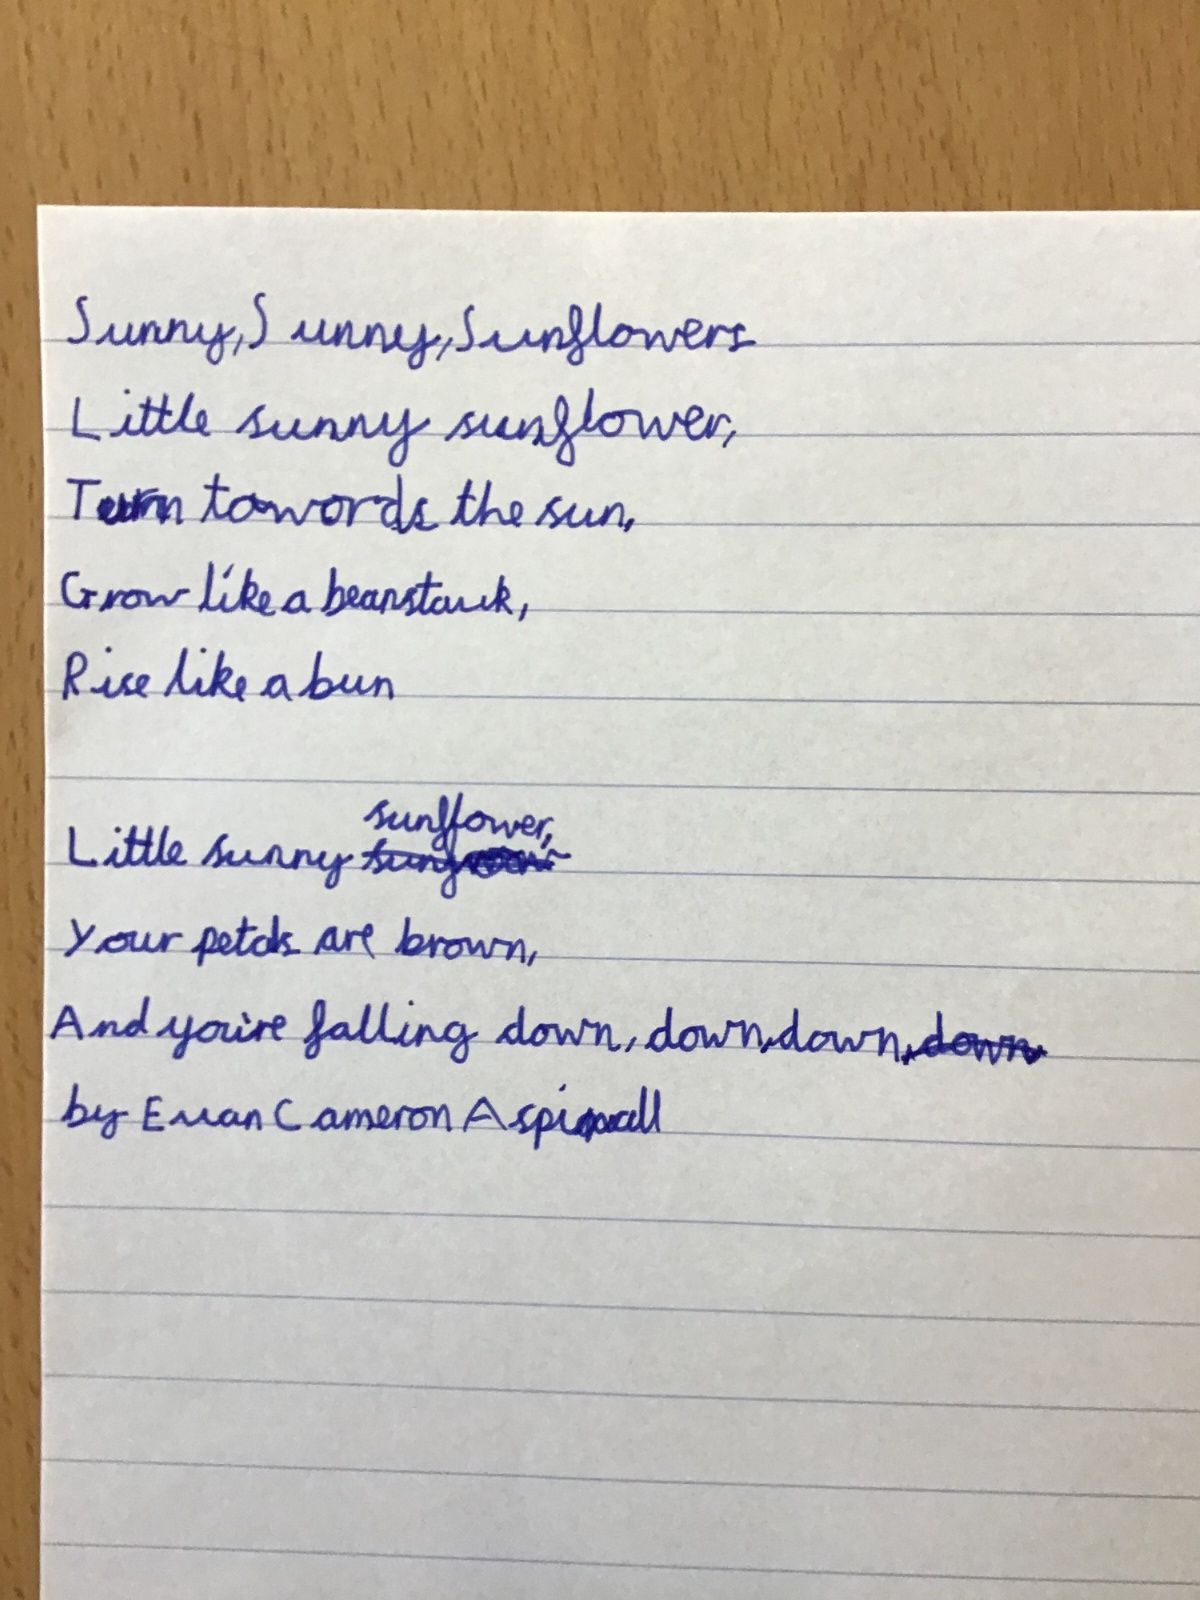 Sunny, Sunny, Sunflowers
Little sunny sunflower,
Turn towords the sun,
Grow like a beanstauk,
Rise like a bun
Little sunny sunflower,
Your petals are brown,
And you're falling down, down, down, down
by Euan Cameron Aspinwall